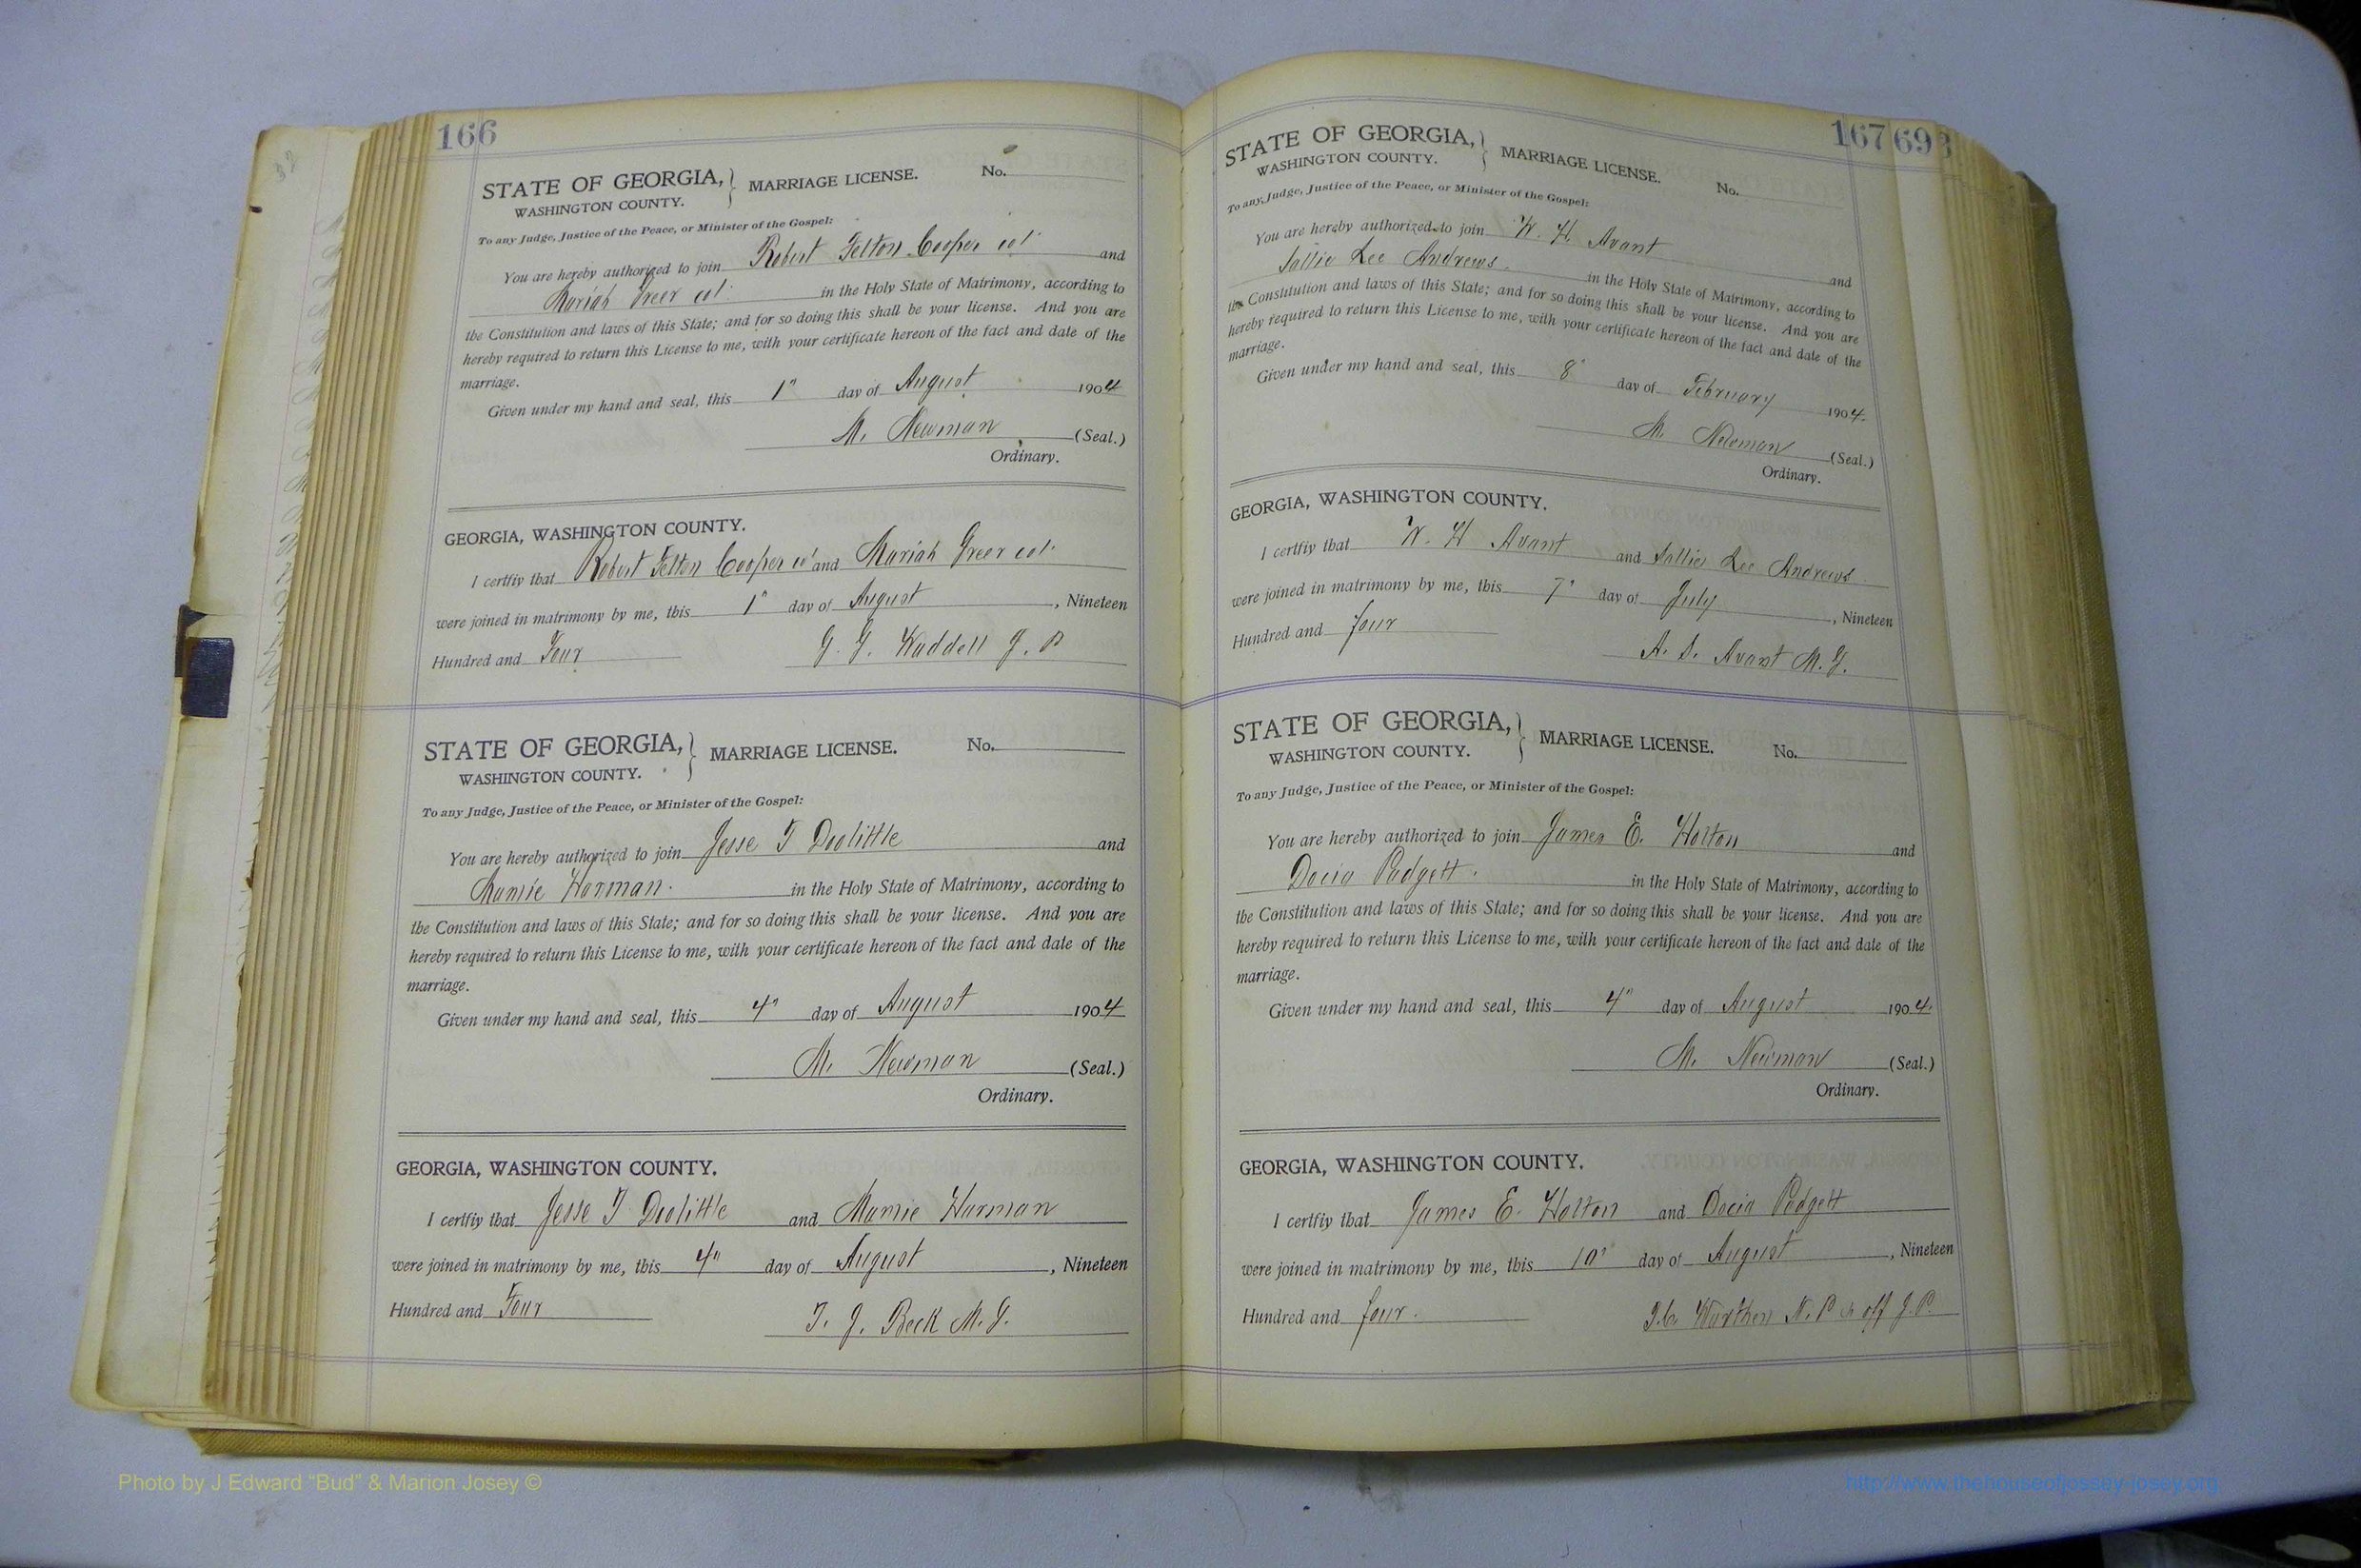 166
STATE OF GEORGIA, } MARRIAGE LICENSE. No.
WASHINGTON COUNTY.
To any Judge, Justice of the Peace, or Minister of the Gospel:
You are hereby authorized to join Robert Felton Cooper col and
Mariah Greer col. in the Holy State of Matrimony, according to
the Constitution and laws of this State; and for so doing this shall be your license. And you are
hereby required to return this License to me, with your certificate hereon of the fact and date of the
marriage.
Given under my hand and seal, this 1" day of August 1904
M. Newman (Seal.)
Ordinary.
GEORGIA, WASHINGTON COUNTY.
I certfiy that Robert Felton Cooper col and Mariah Greer col.
were joined in matrimony by me, this 1" day of August, Nineteen
Hundred and Four G. G. Waddell J. P
STATE OF GEORGIA, } MARRIAGE LICENSE. No.
WASHINGTON COUNTY.
To any Judge, Justice of the Peace, or Minister of the Gospel:
You are hereby authorized to join Jesse T Doolittle and
Mamie Harman. in the Holy State of Matrimony, according to
the Constitution and laws of this State; and for so doing this shall be your license. And you are
hereby required to return this License to me, with your certificate hereon of the fact and date of the
marriage.
Given under my hand and seal, this 4" day of August 1904
M. Newman (Seal.)
Ordinary.
GEORGIA, WASHINGTON COUNTY.
I certfiy that Jesse T Doolittle and Mamie Harman
were joined in matrimony by me, this 4" day of August, Nineteen
Hundred and Four T. J. Beck M. G.
167 693
STATE OF GEORGIA, } MARRIAGE LICENSE. No.
WASHINGTON COUNTY.
To any Judge, Justice of the Peace, or Minister of the Gospel:
You are hereby authorized to join W. H. Avant and
Sallie Lee Andrews. in the Holy State of Matrimony, according to
the Constitution and laws of this State; and for so doing this shall be your license. And you are
hereby required to return this License to me, with your certificate hereon of the fact and date of the
marriage.
Given under my hand and seal, this 8" day of February 1904.
M. Newman (Seal.)
Ordinary.
GEORGIA, WASHINGTON COUNTY.
I certfiy that W. H Avant and Sallie Lee Andrews
were joined in matrimony by me, this 7" day of July, Nineteen
Hundred and four A. S. Avant M. G.
STATE OF GEORGIA, } MARRIAGE LICENSE. No.
WASHINGTON COUNTY.
To any Judge, Justice of the Peace, or Minister of the Gospel:
You are hereby authorized to join James E. Holton and
Docia Padgett. in the Holy State of Matrimony, according to
the Constitution and laws of this State; and for so doing this shall be your license. And you are
hereby required to return this License to me, with your certificate hereon of the fact and date of the
marriage.
Given under my hand and seal, this 4" day of August 1904.
M. Newman (Seal.)
Ordinary.
GEORGIA, WASHINGTON COUNTY.
I certfiy that James E. Holton and Docia Padgett
were joined in matrimony by me, this 10" day of August, Nineteen
Hundred and four. Worthen N. P off J. P.
Photo by J Edward “Bud” & Marion Josey ©
http://www.thehouseofjossey-josey.org